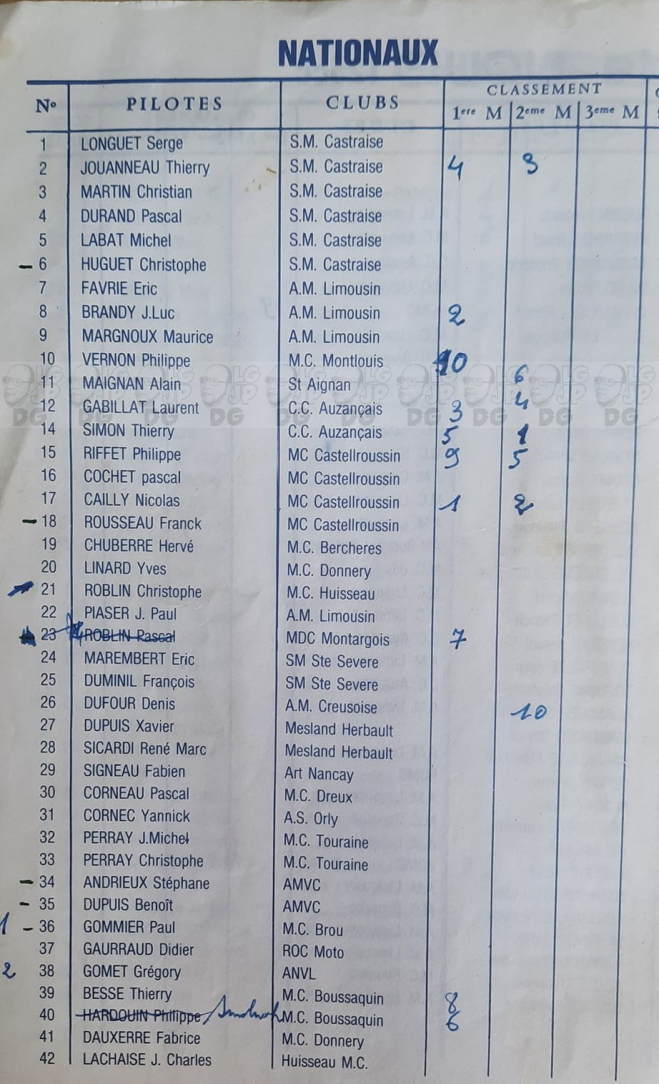 NATIONAUX
Nº PILOTES CLUBS CLASSEMENT
1ere M 2eme M 3eme M
1 LONGUET Serge S.M. Castraise
2 JOUANNEAU Thierry S.M. Castraise 4 3
3 MARTIN Christian S.M. Castraise
4 DURAND Pascal S.M. Castraise
5 LABAT Michel S.M. Castraise
– 6 HUGUET Christophe S.M. Castraise
7 FAVRIE Eric A.M. Limousin
8 BRANDY J.Luc A.M. Limousin 2
9 MARGNOUX Maurice A.M. Limousin
10 VERNON Philippe M.C. Montlouis 10
11 MAIGNAN Alain St Aignan 6
12 GABILLAT Laurent C.C. Auzançais 3 4
14 SIMON Thierry C.C. Auzançais 5 1
15 RIFFET Philippe MC Castellroussin 9 5
16 COCHET pascal MC Castellroussin
17 CAILLY Nicolas MC Castellroussin 1 2
– 18 ROUSSEAU Franck MC Castellroussin
19 CHUBERRE Hervé M.C. Bercheres
20 LINARD Yves M.C. Donnery
21 ROBLIN Christophe M.C. Huisseau
22 PIASER J. Paul A.M. Limousin
23 ROBLIN Pascal MDC Montargois 7
24 MAREMBERT Eric SM Ste Severe
25 DUMINIL François SM Ste Severe
26 DUFOUR Denis A.M. Creusoise 10
27 DUPUIS Xavier Mesland Herbault
28 SICARDI René Marc Mesland Herbault
29 SIGNEAU Fabien Art Nancay
30 CORNEAU Pascal M.C. Dreux
31 CORNEC Yannick A.S. Orly
32 PERRAY J.Michel M.C. Touraine
33 PERRAY Christophe M.C. Touraine
– 34 ANDRIEUX Stéphane AMVC
– 35 DUPUIS Benoît AMVC
1 – 36 GOMMIER Paul M.C. Brou
37 GAURRAUD Didier ROC Moto
2 38 GOMET Grégory ANVL
39 BESSE Thierry M.C. Boussaquin 8
40 HARDOUIN Philippe M.C. Boussaquin 6
41 DAUXERRE Fabrice M.C. Donnery
42 LACHAISE J. Charles Huisseau M.C.